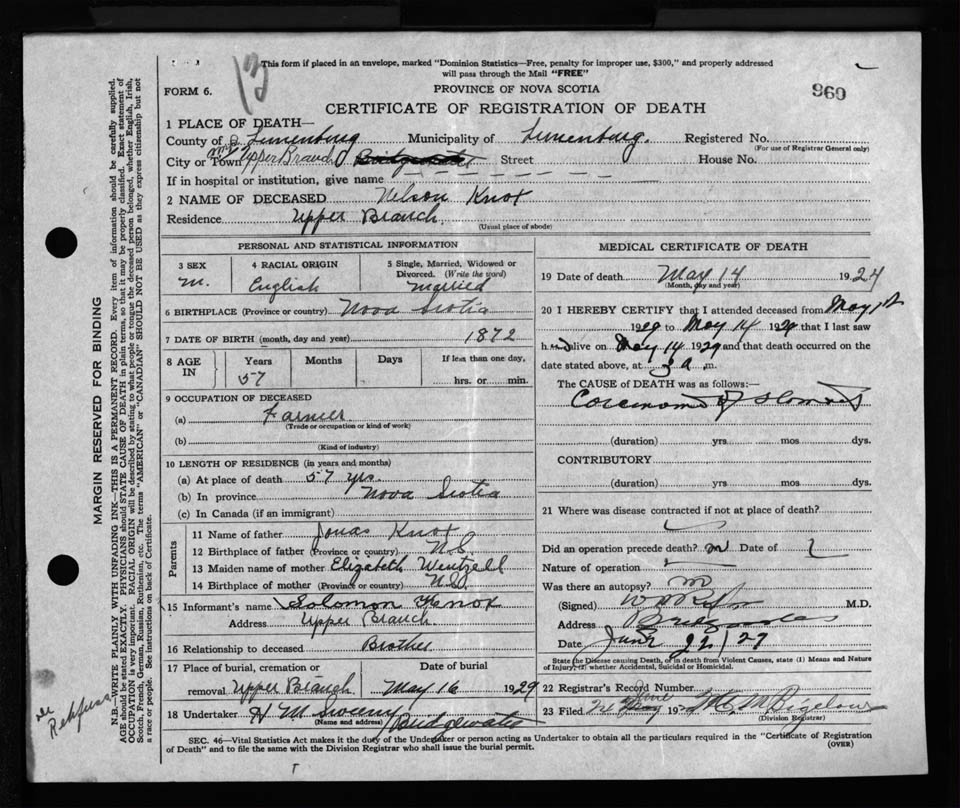 This form if placed in an envelope, marked "Dominion Statistics—Free, penalty for improper use, $300," and properly addressed
will pass through the Mail "FREE"
13
FORM 6.
PROVINCE OF NOVA SCOTIA
960
CERTIFICATE OF REGISTRATION OF DEATH
1 PLACE OF DEATH—
County of Lunenburg Municipality of Lunenburg. Registered No.
(For use of Registrar General only)
City or Town Upper Branch Street House No.
If in hospital or institution, give name
2 NAME OF DECEASED Nelson Knox
Residence Upper Branch.
(Usual place of abode)
PERSONAL AND STATISTICAL INFORMATION
3 SEX
M.
4 RACIAL ORIGIN
English
5 Single, Married, Widowed or
Divorced. (Write the word)
Married
6 BIRTHPLACE (Province or country) Nova Scotia
7 DATE OF BIRTH (month, day and year) 1872
8 AGE IN
Years Months Days If less than one day,
57 hrs. or min.
9 OCCUPATION OF DECEASED
(a) Farmer
(Trade or occupation or kind of work)
(b)
(Kind of industry)
10 LENGTH OF RESIDENCE (in years and months)
(a) At place of death 57 yrs.
(b) In province Nova Scotia
(c) In Canada (if an immigrant)
Parents
11 Name of father Jonas Knox
12 Birthplace of father (Province or country) N.S.
13 Maiden name of mother Elizabeth Wentzell
14 Birthplace of mother (Province or country) N.S.
15 Informant's name Solomon Knox
Address Upper Branch.
16 Relationship to deceased Brother
17 Place of burial, cremation or Date of burial
removal Upper Branch May 16 1929
18 Undertaker H M Sweeny Bridgewater
(Name and address)
MEDICAL CERTIFICATE OF DEATH
19 Date of death May 14 1929
(Month, day and year)
20 I HEREBY CERTIFY that I attended deceased from May 12
1929 to May 14 1929 that I last saw
h alive on May 14 1929 and that death occurred on the
date stated above, at 3 a. m.
The CAUSE of DEATH was as follows:—
Carcinoma of Stomach
(duration) yrs mos dys.
CONTRIBUTORY
(duration) yrs. mos. dys.
21 Where was disease contracted if not at place of death?
Did an operation precede death? no Date of
Nature of operation
Was there an autopsy? no
(Signed) M.D.
Address Bridgewater
Date June 22/29
State the Disease causing Death, or in death from Violent Causes, state (1) Means and Nature
of Injury (2) whether Accidental, Suicidal or Homicidal.
22 Registrar's Record Number
23 Filed June 192 M Bigelow
(Division Registrar)
SEC. 46—Vital Statistics Act makes it the duty of the Undertaker or person acting as Undertaker to obtain all the particulars required in the "Certificate of Registration
of Death" and to file the same with the Division Registrar who shall issue the burial permit.
(OVER)
MARGIN RESERVED FOR BINDING
N.B.—WRITE PLAINLY WITH UNFADING INK—THIS IS A PERMANENT RECORD. Every item of information should be carefully supplied.
AGE should be stated EXACTLY. PHYSICIANS should STATE CAUSE OF DEATH in plain terms, so that it may be properly classified. Exact statement of
OCCUPATION is very important. RACIAL ORIGIN will be described by stating to what people or tongue the deceased person belonged, whether English, Irish,
Scotch, French, German, Russian, Ruthenian, etc. The terms "AMERICAN" or "CANADIAN" SHOULD NOT BE USED as they express citizenship but not
a race or people. See instructions on back of Certificate.